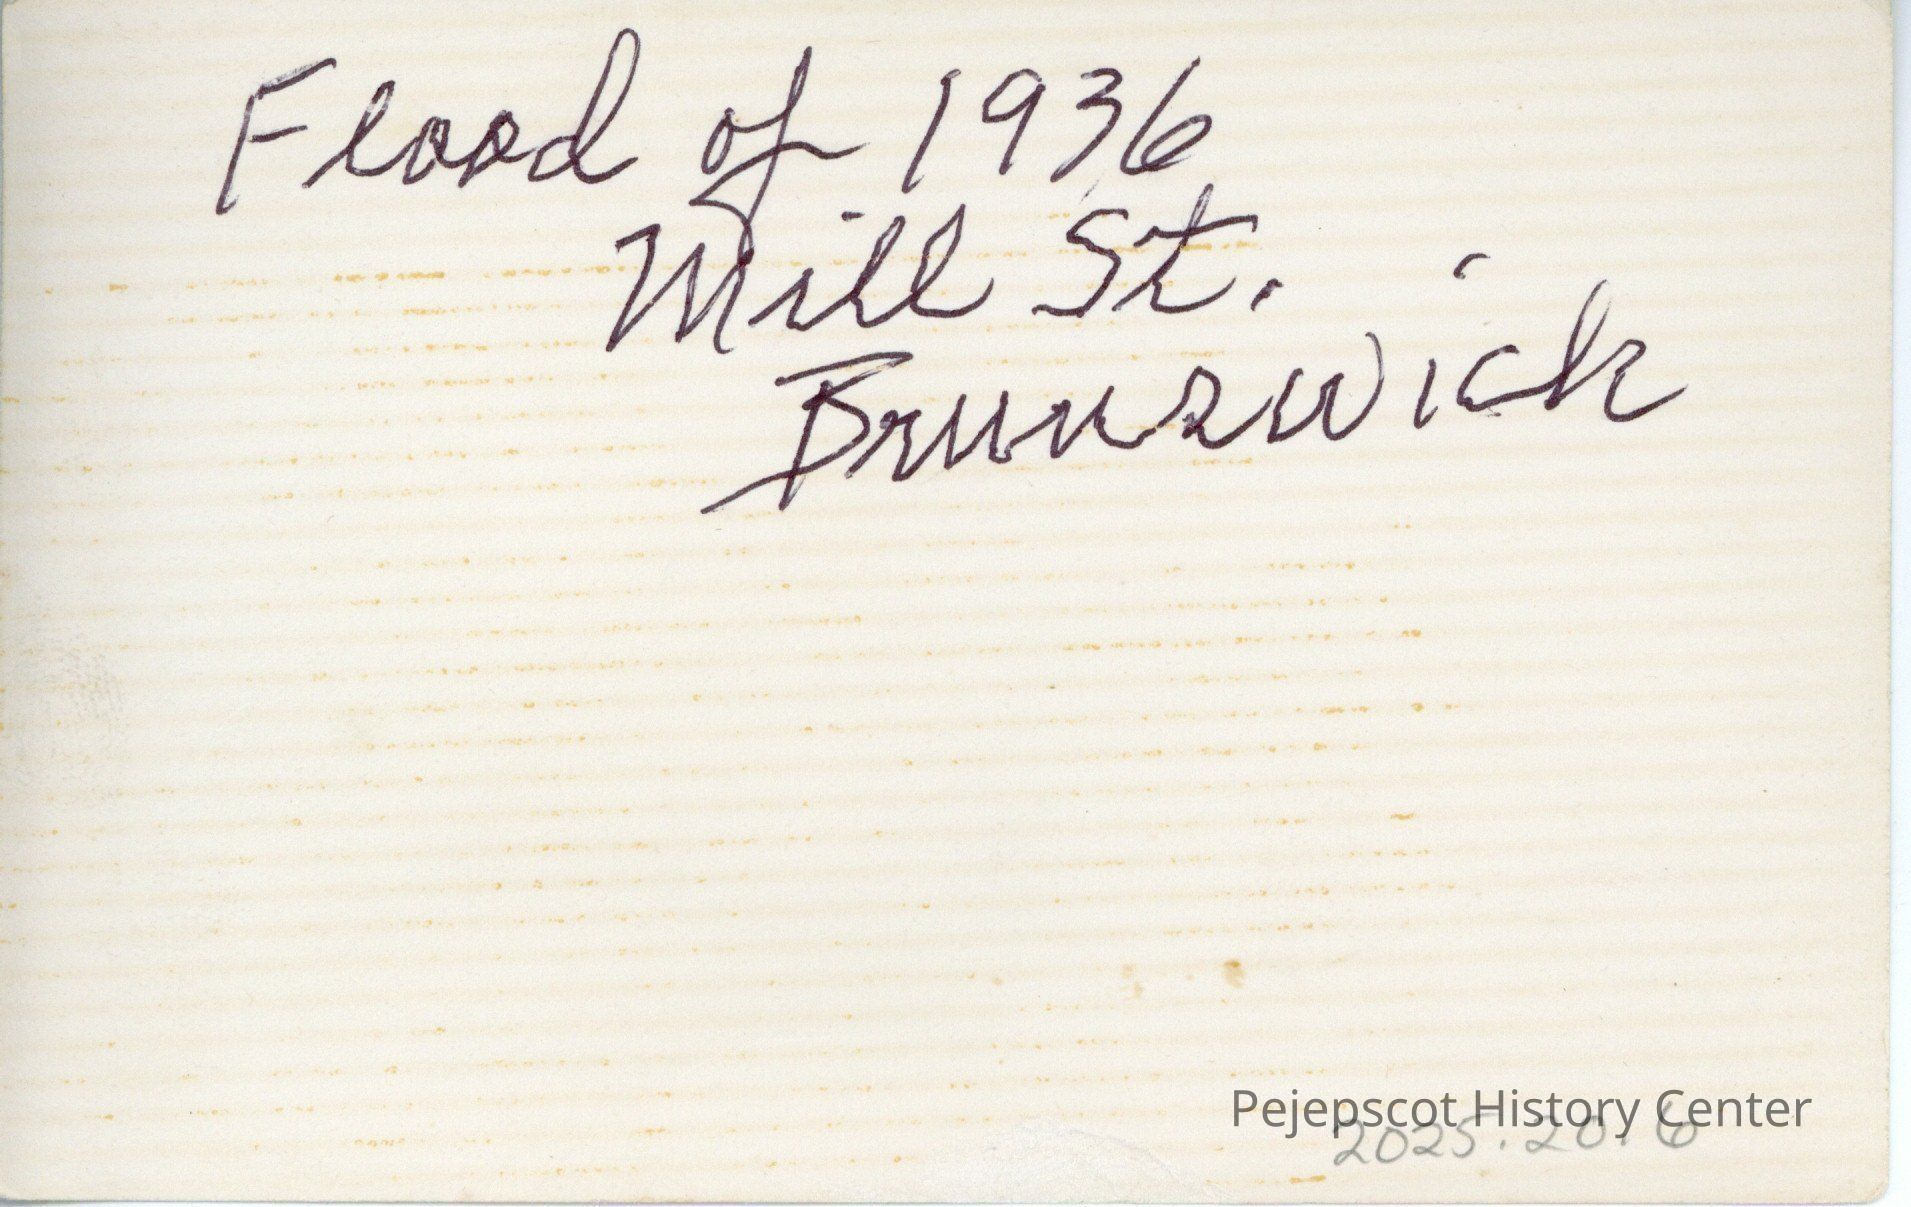 Flood of 1936
Mill St.
Brunswick
Pejepscot History Center
2025.20.6